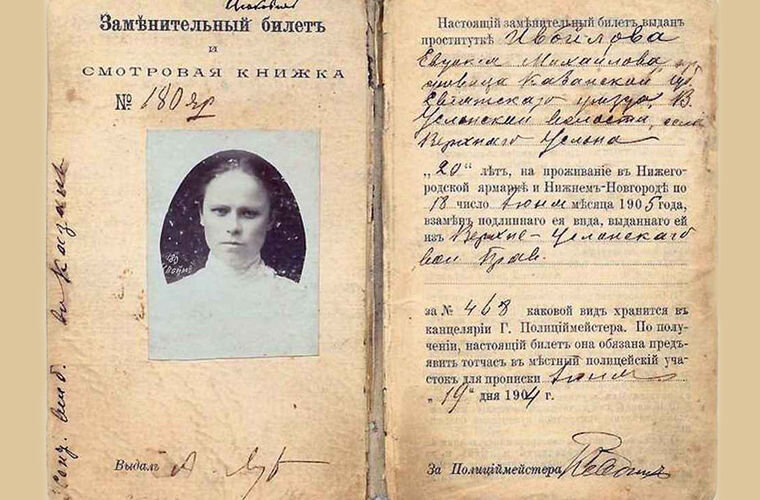 Замѣнительный билетъ
и
СМОТРОВАЯ КНИЖКА
№ 180 яр
Выдалъ
въ Казань
Настоящій замѣнительный билетъ выданъ
проституткѣ Ивойлова
Евдокія Михайлова, кр
Казанской губ
Свіяжскаго уѣзда, В.
Услонской волости, села
Верхняго Услона
„20" лѣтъ, на проживаніе въ Нижего-
родской ярмаркѣ и Нижнемъ-Новгородѣ по
18 число Іюня мѣсяца 1905 года,
взамѣнъ подлиннаго ея вида, выданнаго ей
изъ Верхне-Услонскаго
вол Прав.
за № 468 каковой видъ хранится въ
канцеляріи Г. Полиціймейстера. По полу-
ченіи, настоящій билетъ она обязана предъ-
явить тотчасъ въ мѣстный полицейскій уча-
стокъ для прописки Іюня
„19" дня 1904 г.
За Полиціймейстера